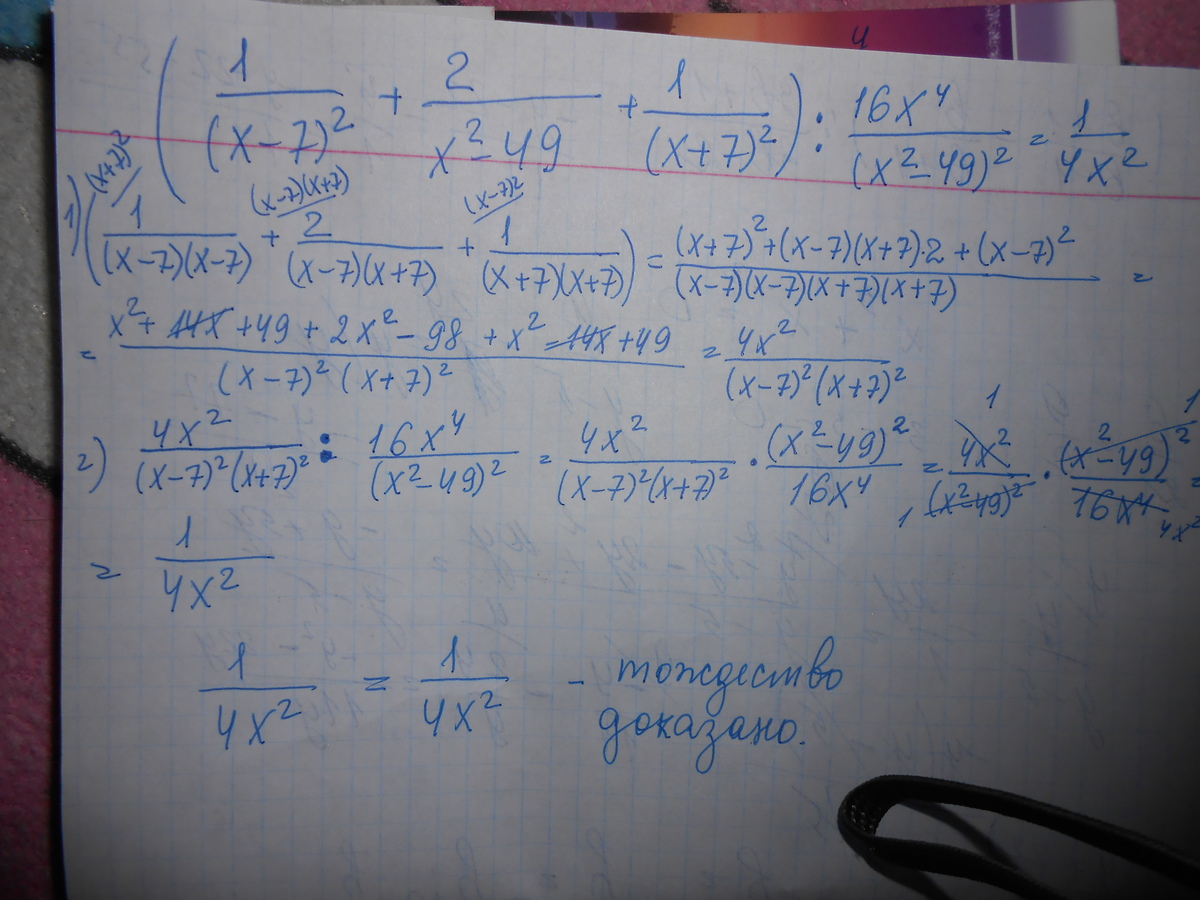 ( 1/(x-7)² + 2/(x²-49) + 1/(x+7)² ) : 16x⁴/(x²-49)² = 1/4x²
(x+7)² (x-7)(x+7) (x-7)²
1) ( 1/((x-7)(x-7)) + 2/((x-7)(x+7)) + 1/((x+7)(x+7)) ) = ((x+7)²+(x-7)(x+7)·2+(x-7)²)/((x-7)(x-7)(x+7)(x+7)) =
= (x²+14x+49+2x²-98+x²-14x+49)/((x-7)²(x+7)²) = 4x²/((x-7)²(x+7)²)
2) 4x²/((x-7)²(x+7)²) : 16x⁴/(x²-49)² = 4x²/((x-7)²(x+7)²) · (x²-49)²/16x⁴ = 4x²/(x²-49)² · (x²-49)²/16x⁴ =
1 1 1 4x²
= 1/4x²
1/4x² = 1/4x² - тождество
доказано.